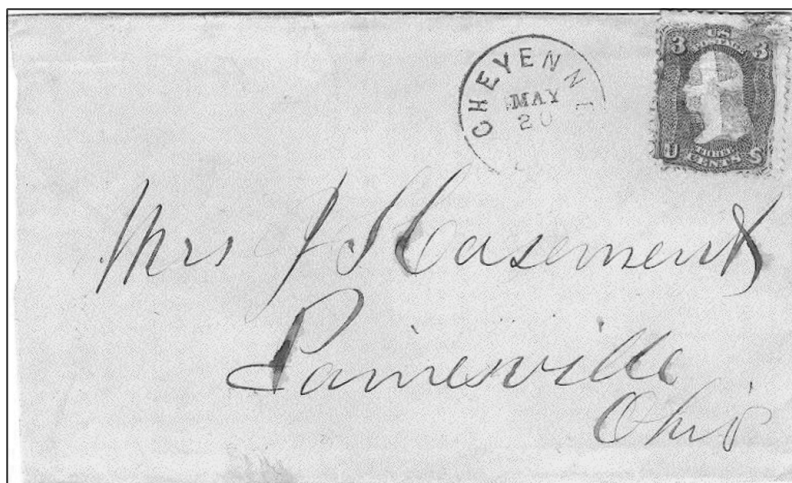 CHEYENNE
MAY
20
3 U.S. POSTAGE 3
U THREE S
CENTS
Mrs J S Casement
Painesville
Ohio